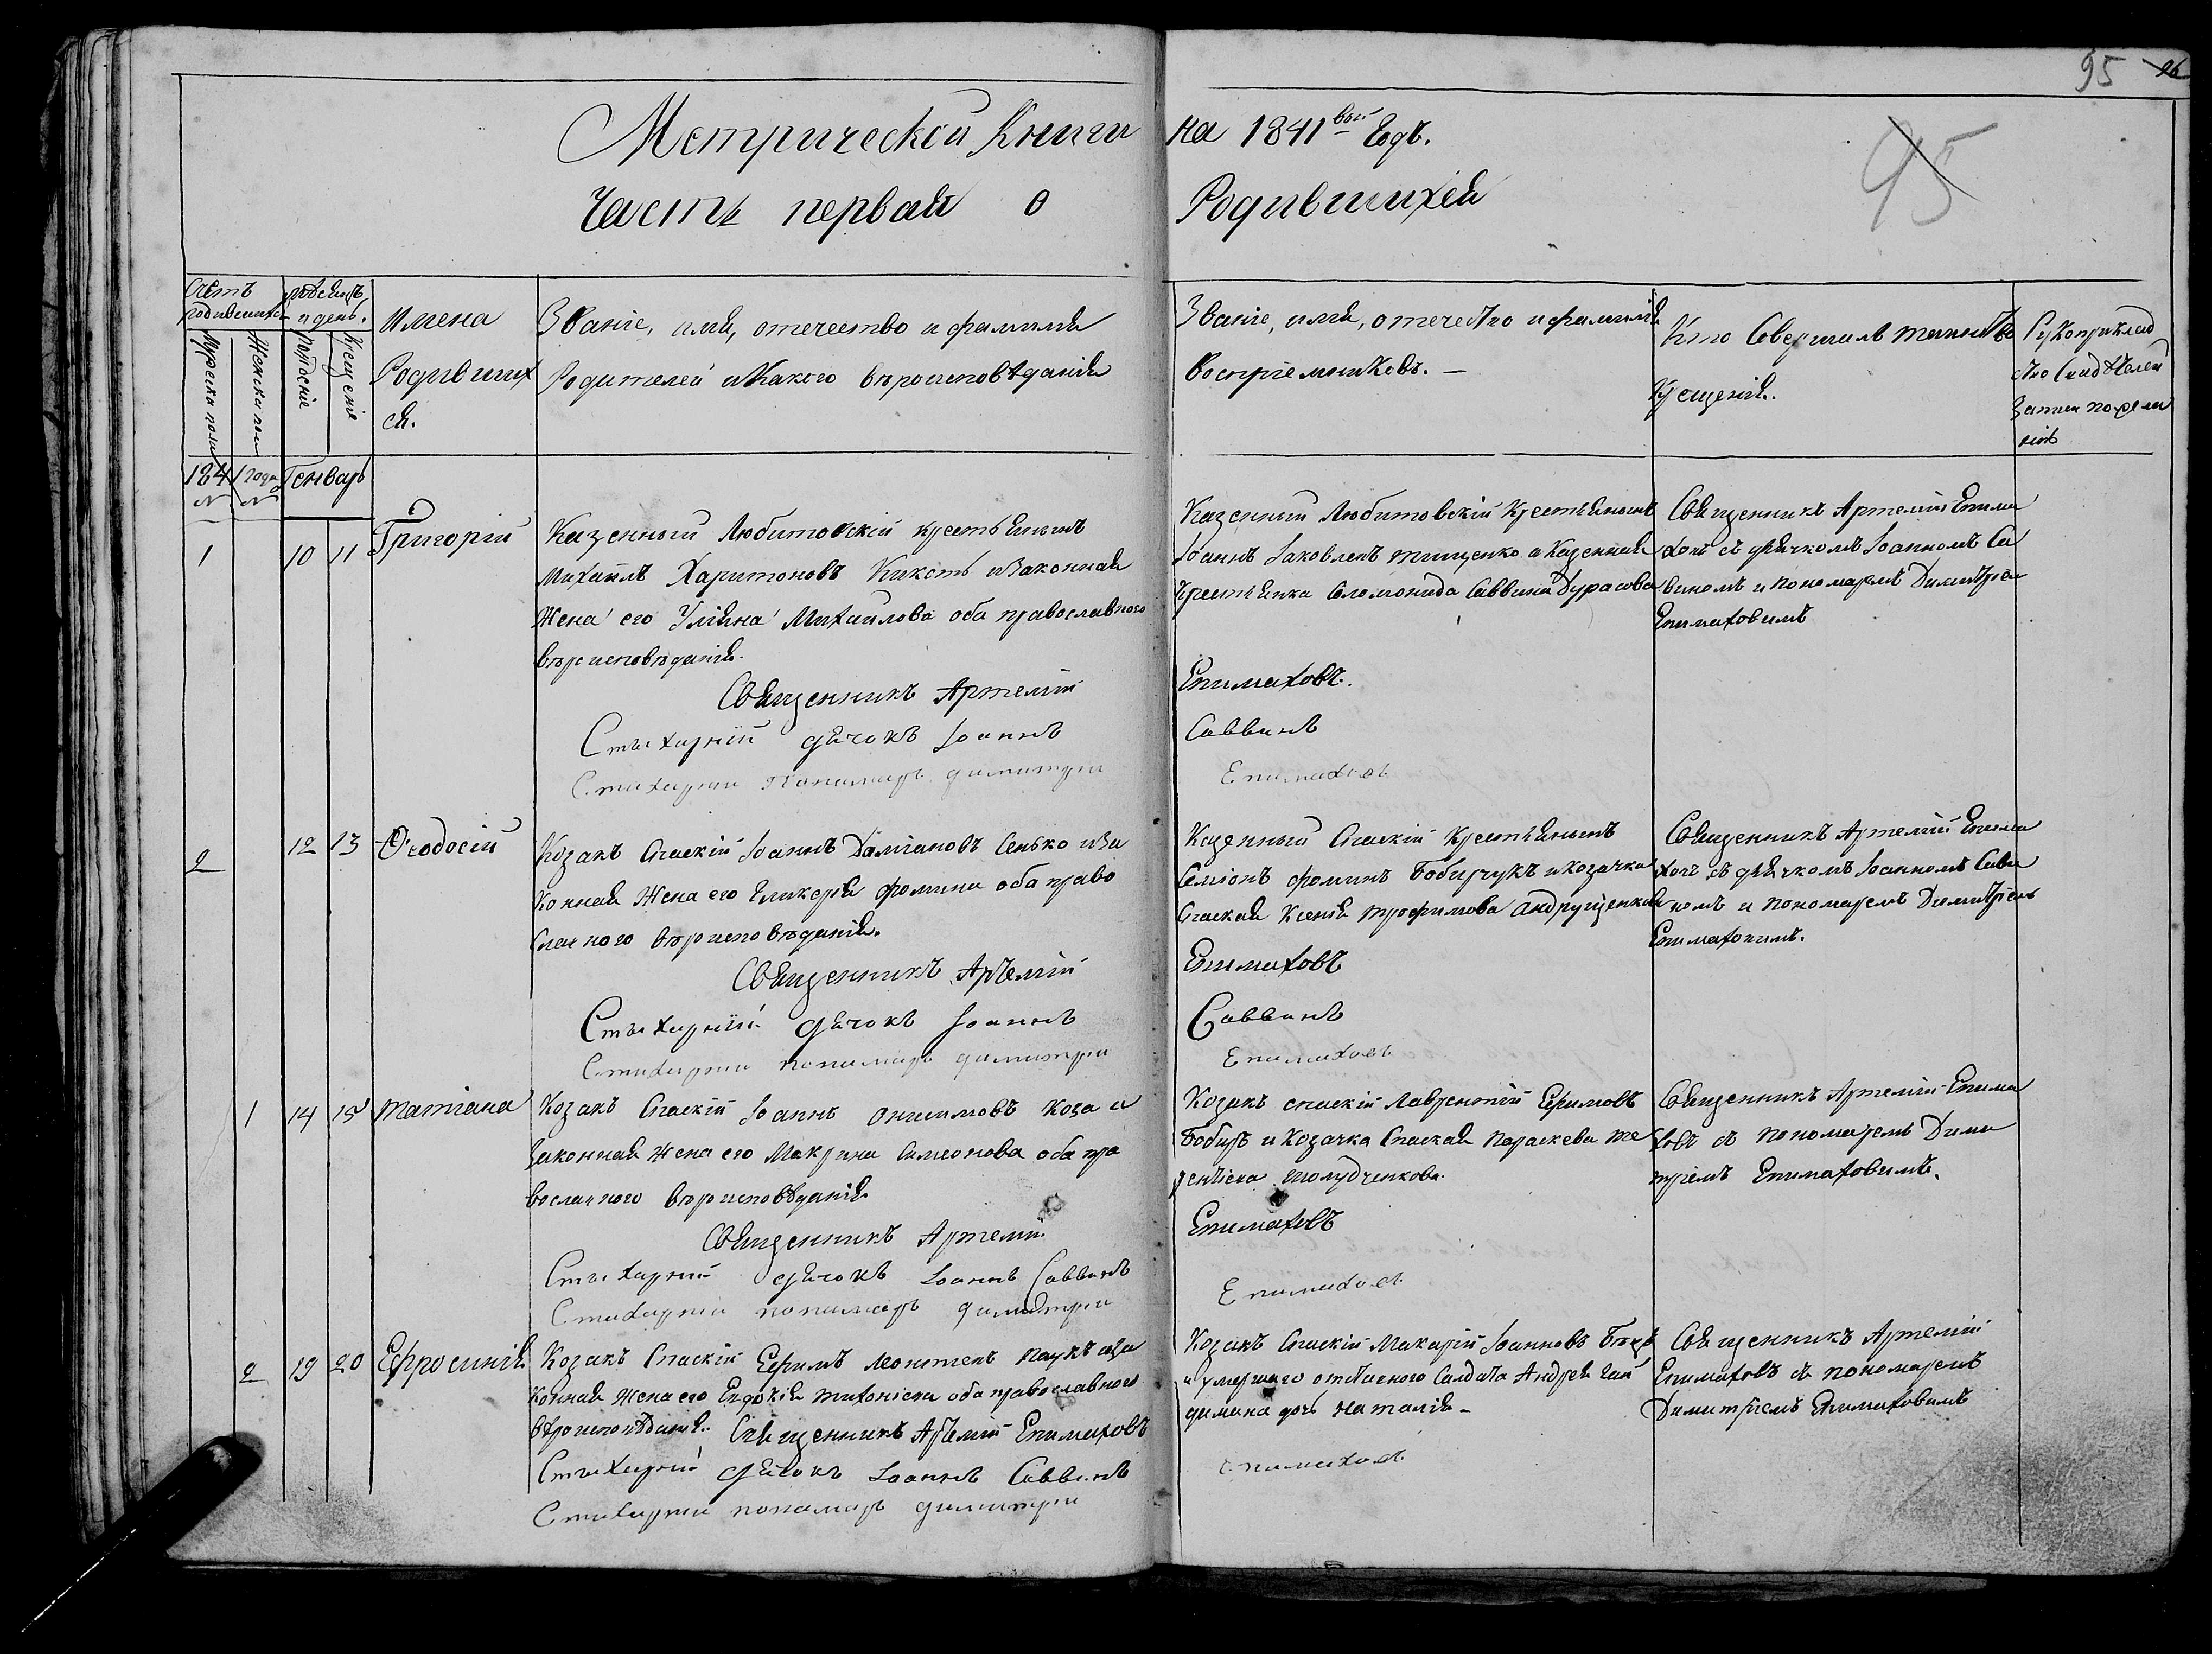 95 96
Метрической Книги на 1841вый Годъ.
95
Часть первая о Родившихся
Счетъ родившихся
Мужеска пола
Женска пол
месяцъ и день.
рождение
Крещение
Имена
Родивших
ся.
Звание, имя, отечество и фамилия
Родителей и Какого вероисповѣдания
Звание, имя, отечество и фамилия
восприемниковъ.
Кто Совершалъ таинство
Крещения.
Рукоприклад
ство Свидѣтелей
записи по жела
нию
1841 года Генварь
1 10 11 Григорий
Казенный Любитовский крестьянинъ
Михаилъ Харитоновъ Кикоть и Законная
Жена его Улияна Михаилова оба православного
вероисповедания.
Священникъ Артемий
Стихарный дячокъ Iоаннъ
Стихарний Понамарь димитрий
Казенный Любитовский Крестьянинъ
Iоаннъ Iаковлевъ тищенко и Казенная
Крестьянка Соломонида Саввина Дурасова
Епимаховъ.
Саввинъ
Епимаховъ
Священникъ Артемий Епима
ховъ съ дячкомъ Iоанномъ Са
винымъ и пономаремъ Димитрием
Епимаховимъ
2 12 13 Феодосий
Козакъ Спаский Iоаннъ Дамиановъ Сенько и За
конная Жена его Гликерия фомина оба право
славного вероисповедания.
Священникъ Артемий
Стихарный дячокъ Iоаннъ
Стихарний понамарь димитрий
Казенный Спаский Крестьянинъ
Симионъ фоминъ Бобирчукъ и козачка
Спаская Ксения трофимова андрущенкова
Епимаховъ
Саввинъ
Епимаховъ
Священникъ Артемий Епима
ховъ съ дячкомъ Iоанномъ Сави
нымъ и пономаремъ Димитриемъ
Епимаховимъ.
1 14 15 татиана
Козакъ Спаский Iоаннъ онисимовъ Коза и
Законная Жена его Макрина Симеонова оба пра
вославного вероисповѣдания
Священникъ Артемий
Стихарний дячокъ Iоаннъ Саввинъ
Стихарний понамарь димитрий
Козакъ спаский Лаврентий Ефимовъ
Бобирь и Козачка Спаская Параскева те
рентиева
Епимаховъ
Епимаховъ
Священникъ Артемий Епима
ховъ съ пономаремъ Дими
триемъ Епимаховимъ.
2 19 20 Ефросиния
Козакъ Спаский Ефимъ Леонтиевъ Паукъ и За
Конная Жена его Евдокия тихониева оба православного
вѣроисповѣдания. Священникъ Артемий Епимаховъ
Стихарний дячокъ Iоаннъ Саввинъ
Стихарний понамарь димитрий
Козакъ Спаский Макарий Iоанновъ
и умершаго отставного Салдата Андрея Гай
димака дочь наталия
Епимаховъ
Священникъ Артемий
Епимаховъ съ пономаремъ
Димитриемъ Епимаховимъ